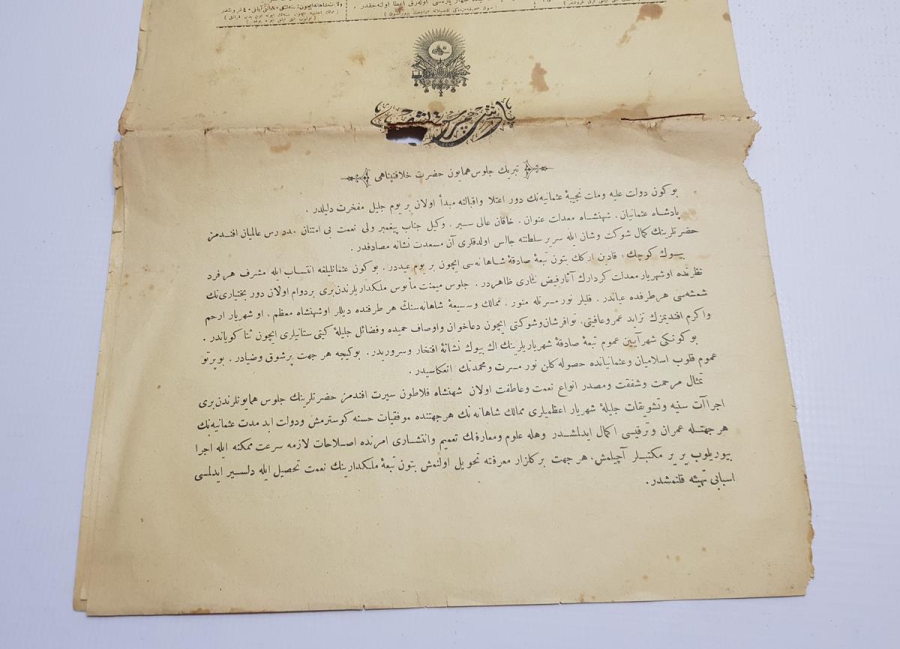 پادشاهم چوق یشا
تبریك جلوس همایون حضرت خلافتپناهی
بو کون دولت علیه ومات نجیبهٔ عثمانیه‌نك دور اعتلا واقبالنه مبدأ اولان بر یوم جلیل مفخرت دلیلدر .
پادشاه عثمانیان . شهنشاه معدلت عنوان . خاقان عالی سیر . وکیل جناب پیغمبر ولی نعمت بی امتنان
حضرتلرینك کمال شوکت وشان ایله سریر سلطنته جالس اولدقلری آن مسعدت نشانه مصادفدر .
بیوك کوچك ، قادین ارکك بتون تبعهٔ صادقهٔ شاهانه‌سی ایچون بر یوم عیددر . بو کون عثمانلیلغه انتساب ایله مشرف هر فرد
نظرنده او شهریار معدلت کردارك آثار فیض ظاهردر . جلوس میمنت مأنوس ملکدارلرندن بری بر دوام اولان دور بختیاری‌نك
شعشعه‌سی هر طرفده عیاندر . قلبلر نور مسرتله منور . ممالك وسیعهٔ شاهانه‌سنك هر طرفنده دیللر او شهنشاه معظم . او شهریار ارحم
واکرم افندیمزك تزاید عمر وعافیتی، توافر شان وشوکتی ایچون دعاخوان واوصاف حمیده وفضائل جلیلهٔ کیتی ستانیلری ایچون ثنا کویاندر .
بو کونکی شهر آیین عموم تبعهٔ صادقهٔ شهریاریلرینك اك بیوك نشانهٔ افتخار وسروریدر . بو کیجه هر جهت پر شوق وضیادر . بو پرتو
عموم قلوب اسلامیان وعثمانیانده حصوله کلن نور مسرت ومحمدتك انعکاسیدر .
تمثال مرحمت وشفقت ومصدر انواع نعمت وعاطفت اولان شهنشاه فلاطون سیرت افندمز حضرتلرینك جلوس همایونلرندن بری
اجراآت سنیه وتشویقات جلیلهٔ شهریار اعظمیلری ممالك شاهانه‌نك هر جهتنده موفقیات حسنه کوسترمش ودولت ابد مدت عثمانیه‌نك
هر جهتله عمران وترقیسی اکمال ایدلمشدر وهله علوم ومعارفك تعمیم وانتشاری امرنده اصلاحات لازمه سرعت ممکنه ایله اجرا
بیوریلوب یر یر مکتبلر آچیلمش، هر جهت بر کلزار معرفته تحویل اولنمش بتون تبعهٔ ملکدارینك نعمت تحصیل ایله دلسیر ایدلمسی
اسبابی تهیئه قلنمشدر .